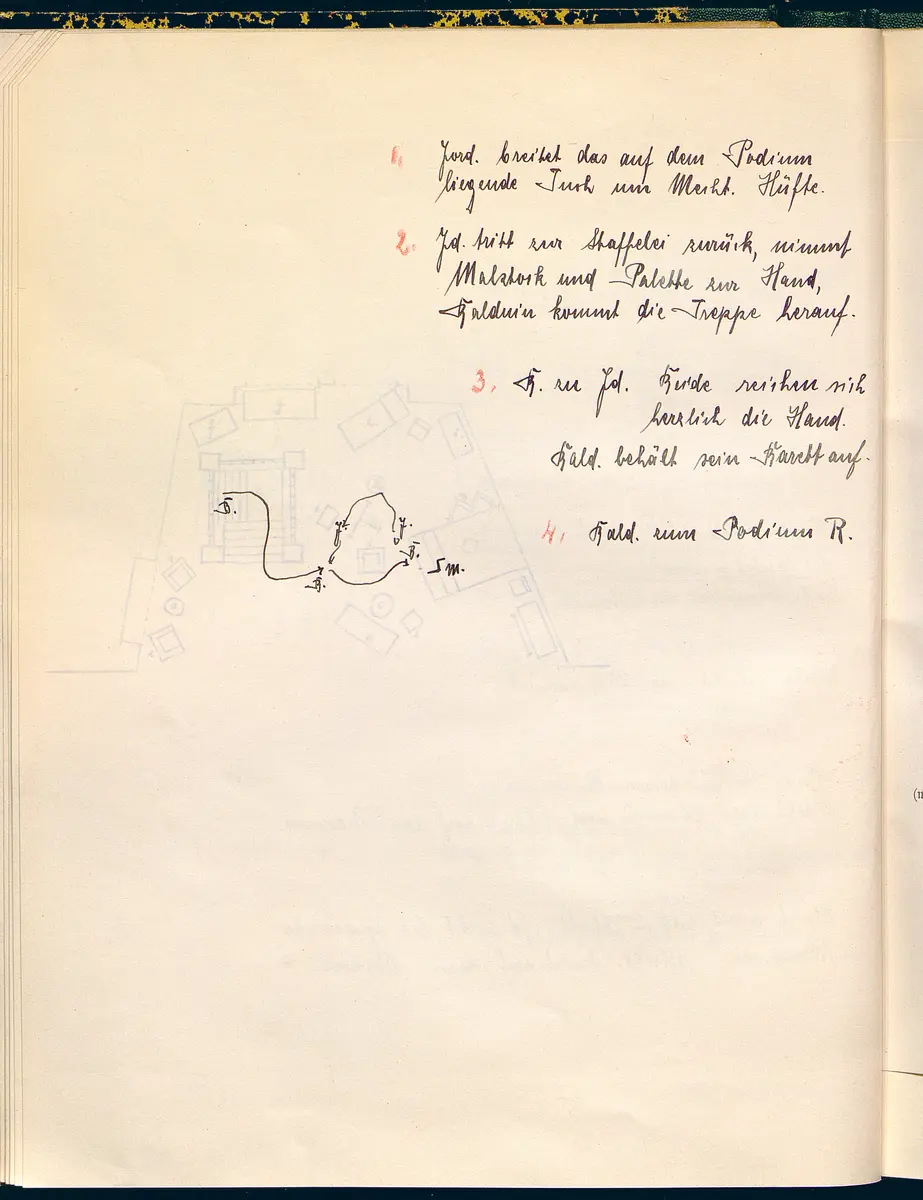 1. Jord. breitet das auf dem Podium
liegende Tuch um Mecht. Hüfte.
2. Jd. tritt zur Staffelei zurück, nimmt
Malstock und Palette zur Hand,
Balduin kommt die Treppe herauf.
3. B. zu Jd. Beide reichen sich
herzlich die Hand.
Bald. behält sein Barett auf.
B.
J. J.
B.
B.
M.
4. Bald. zum Podium R.